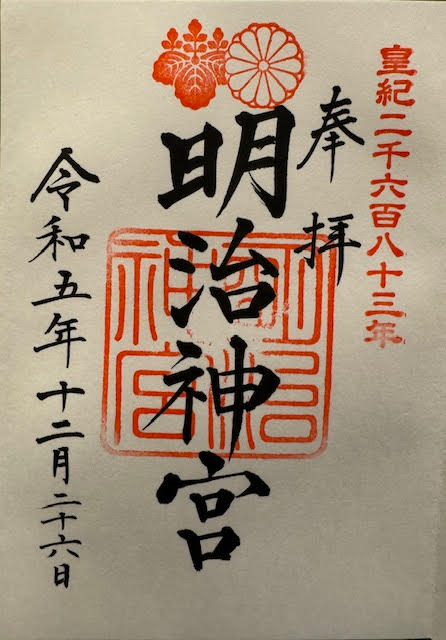 皇紀二千六百八十三年
奉拝
明治神宮
明治神宮
令和五年十二月二十六日